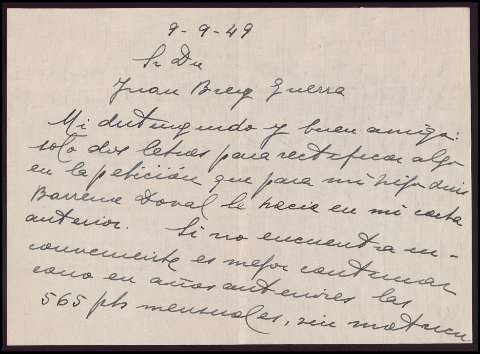 9-9-49
Sr Dn
Juan Guerra
Mi distinguido y buen amigo:
solo dos letras para rectificar algo
en la petición que para mi hijo Luis
Barrene Doval le hacia en mi carta
anterior. Si no encuentra in-
conveniente es mejor continuar
como en años anteriores las
565 pts mensuales, sin matricu